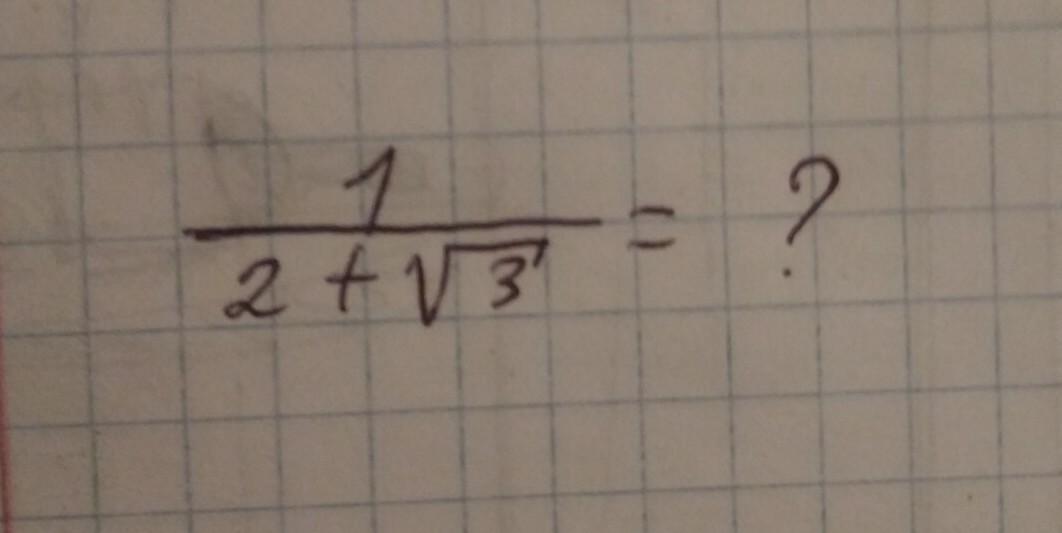 1
2 + √3 = ?